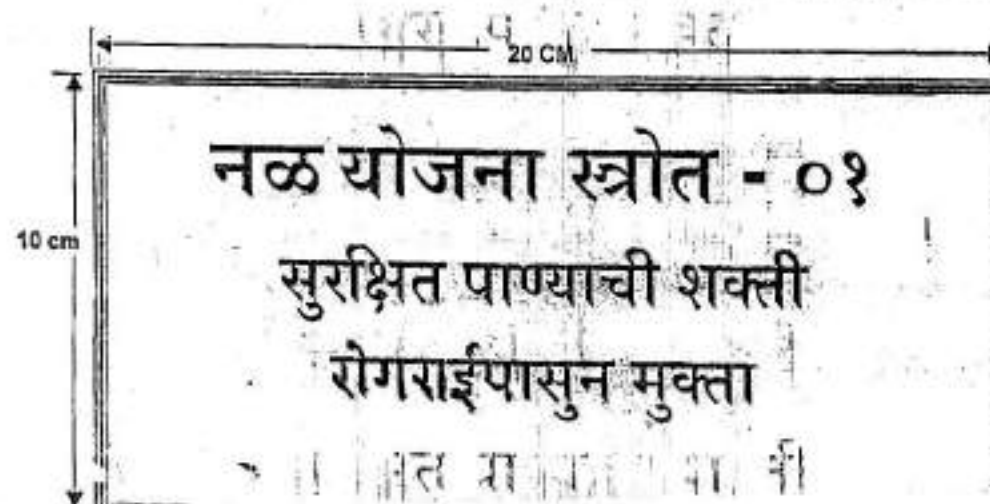 20 CM
10 cm
नळ योजना स्त्रोत - ०१
सुरक्षित पाण्याची शक्ती
रोगराईपासुन मुक्ता